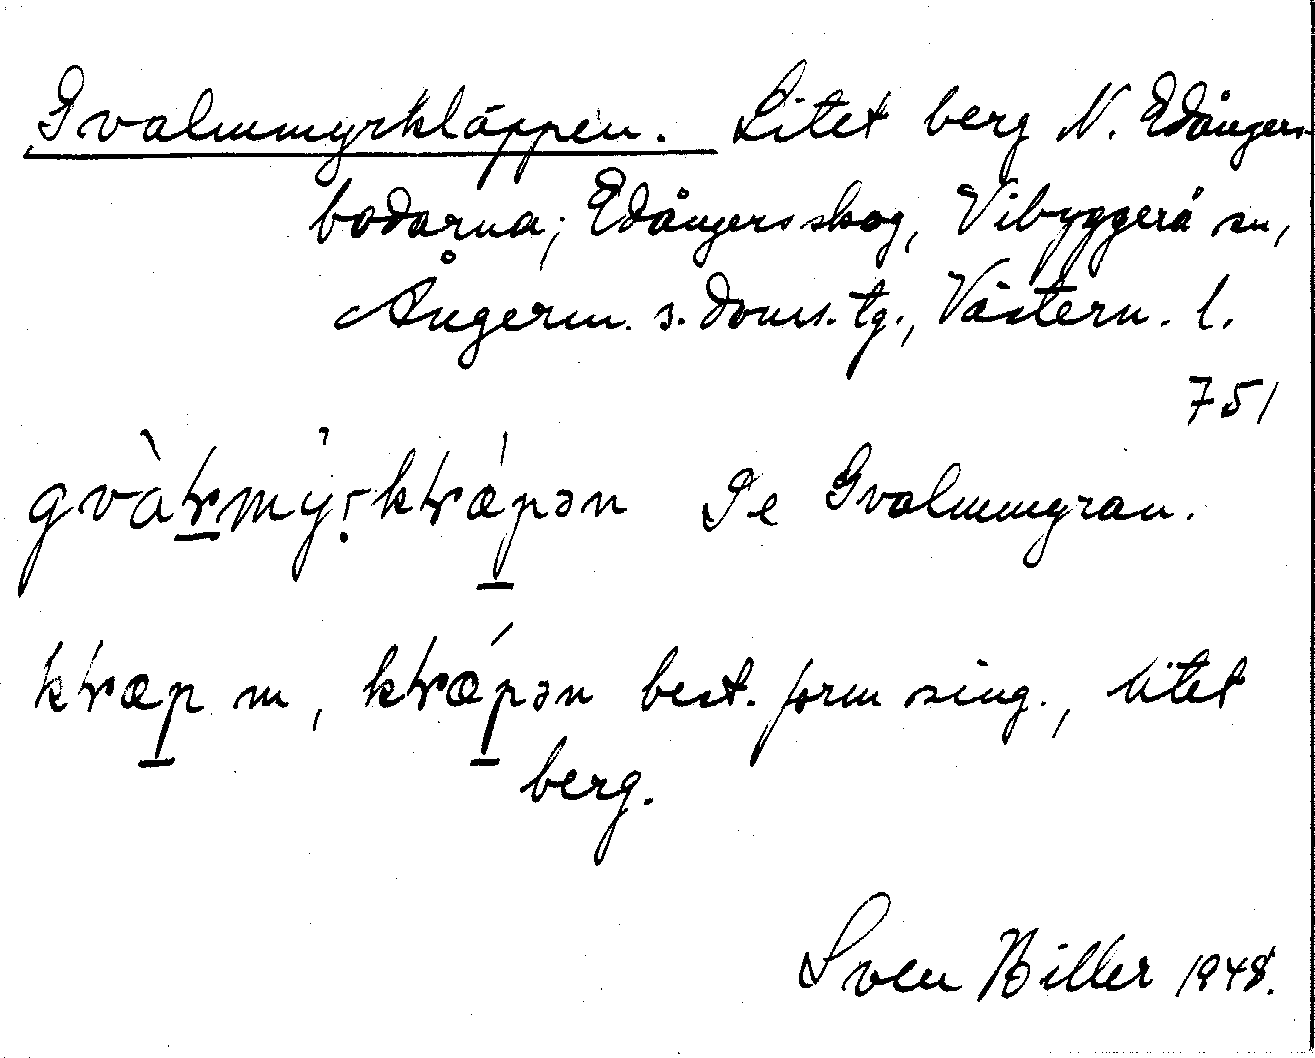 Gvalmmyrkläppen. Litet berg N. Edångers-
bodarna; Edångersskog, Vibyggerå sn,
Ångerm. s. doms. tg., Västern. l.
751
gvàɽmỳrkɽǽpən Se Gvalmmyran.
kɽæp m, kɽǽpən best. form sing., litet
berg.
Sven Biller 1948.